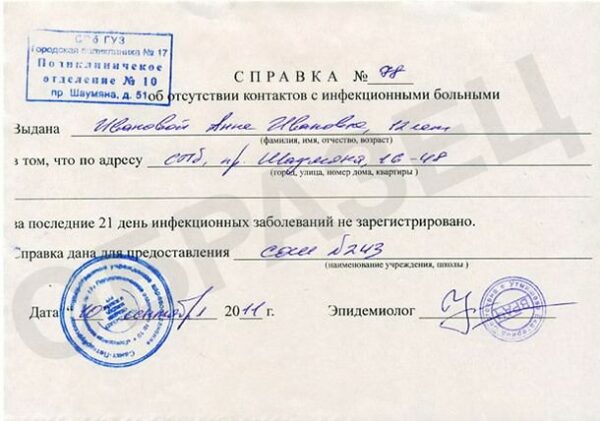 СПб ГУЗ
Городская поликлиника № 17
Поликлиническое
отделение № 10
пр. Шаумяна, д. 51
СПРАВКА № 98
об отсутствии контактов с инфекционными больными
Выдана Ивановой Анне Ивановне, 12 лет
(фамилия, имя, отчество, возраст)
в том, что по адресу СПб, пр. Шаумяна, 16-48
(город, улица, номер дома, квартиры)
за последние 21 день инфекционных заболеваний не зарегистрировано.
Справка дана для предоставления СОШ №243
(наименование учреждения, школы)
Дата "10" сентября 2011 г. Эпидемиолог
ВРАЧ
ОБРАЗЕЦ